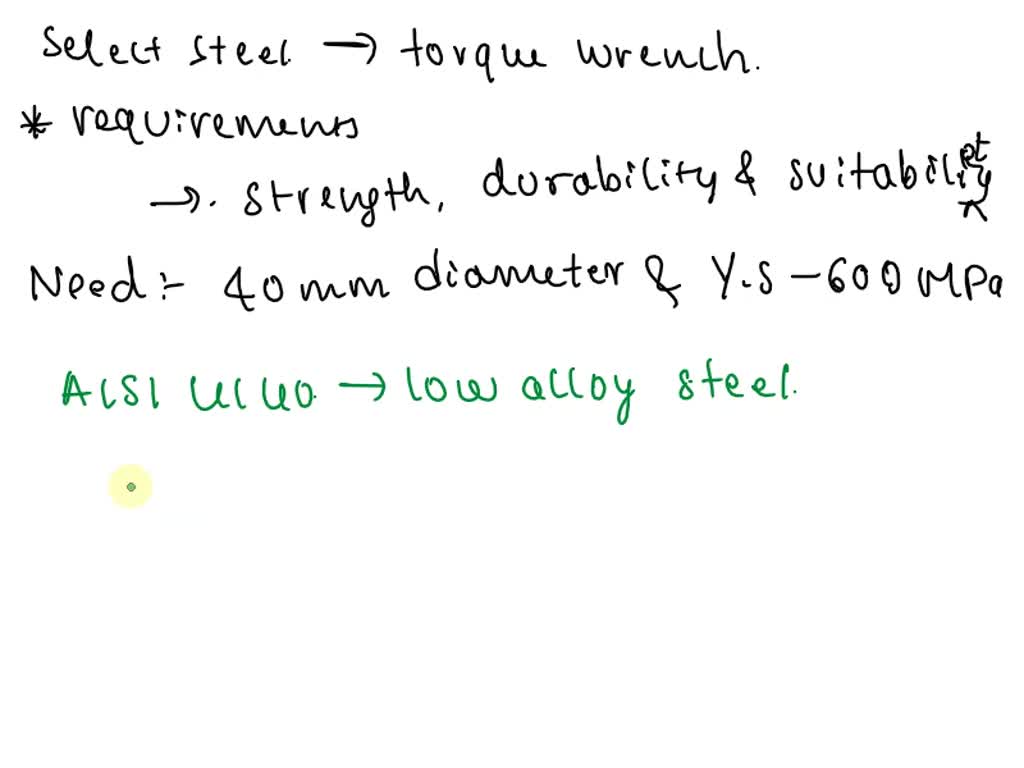 Select steel → torque wrench.
* requirements
→. strength, durability & suitability
Need :- 40 mm diameter & Y.S - 600 MPa
AISI 4140 → low alloy steel.